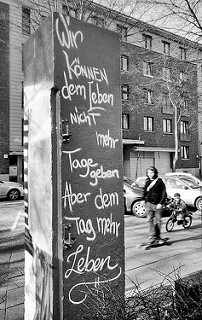 Wir
KÖNNEN
dem Leben
nicht
mehr
Tage
geben
Aber dem
Tag mehr
Leben